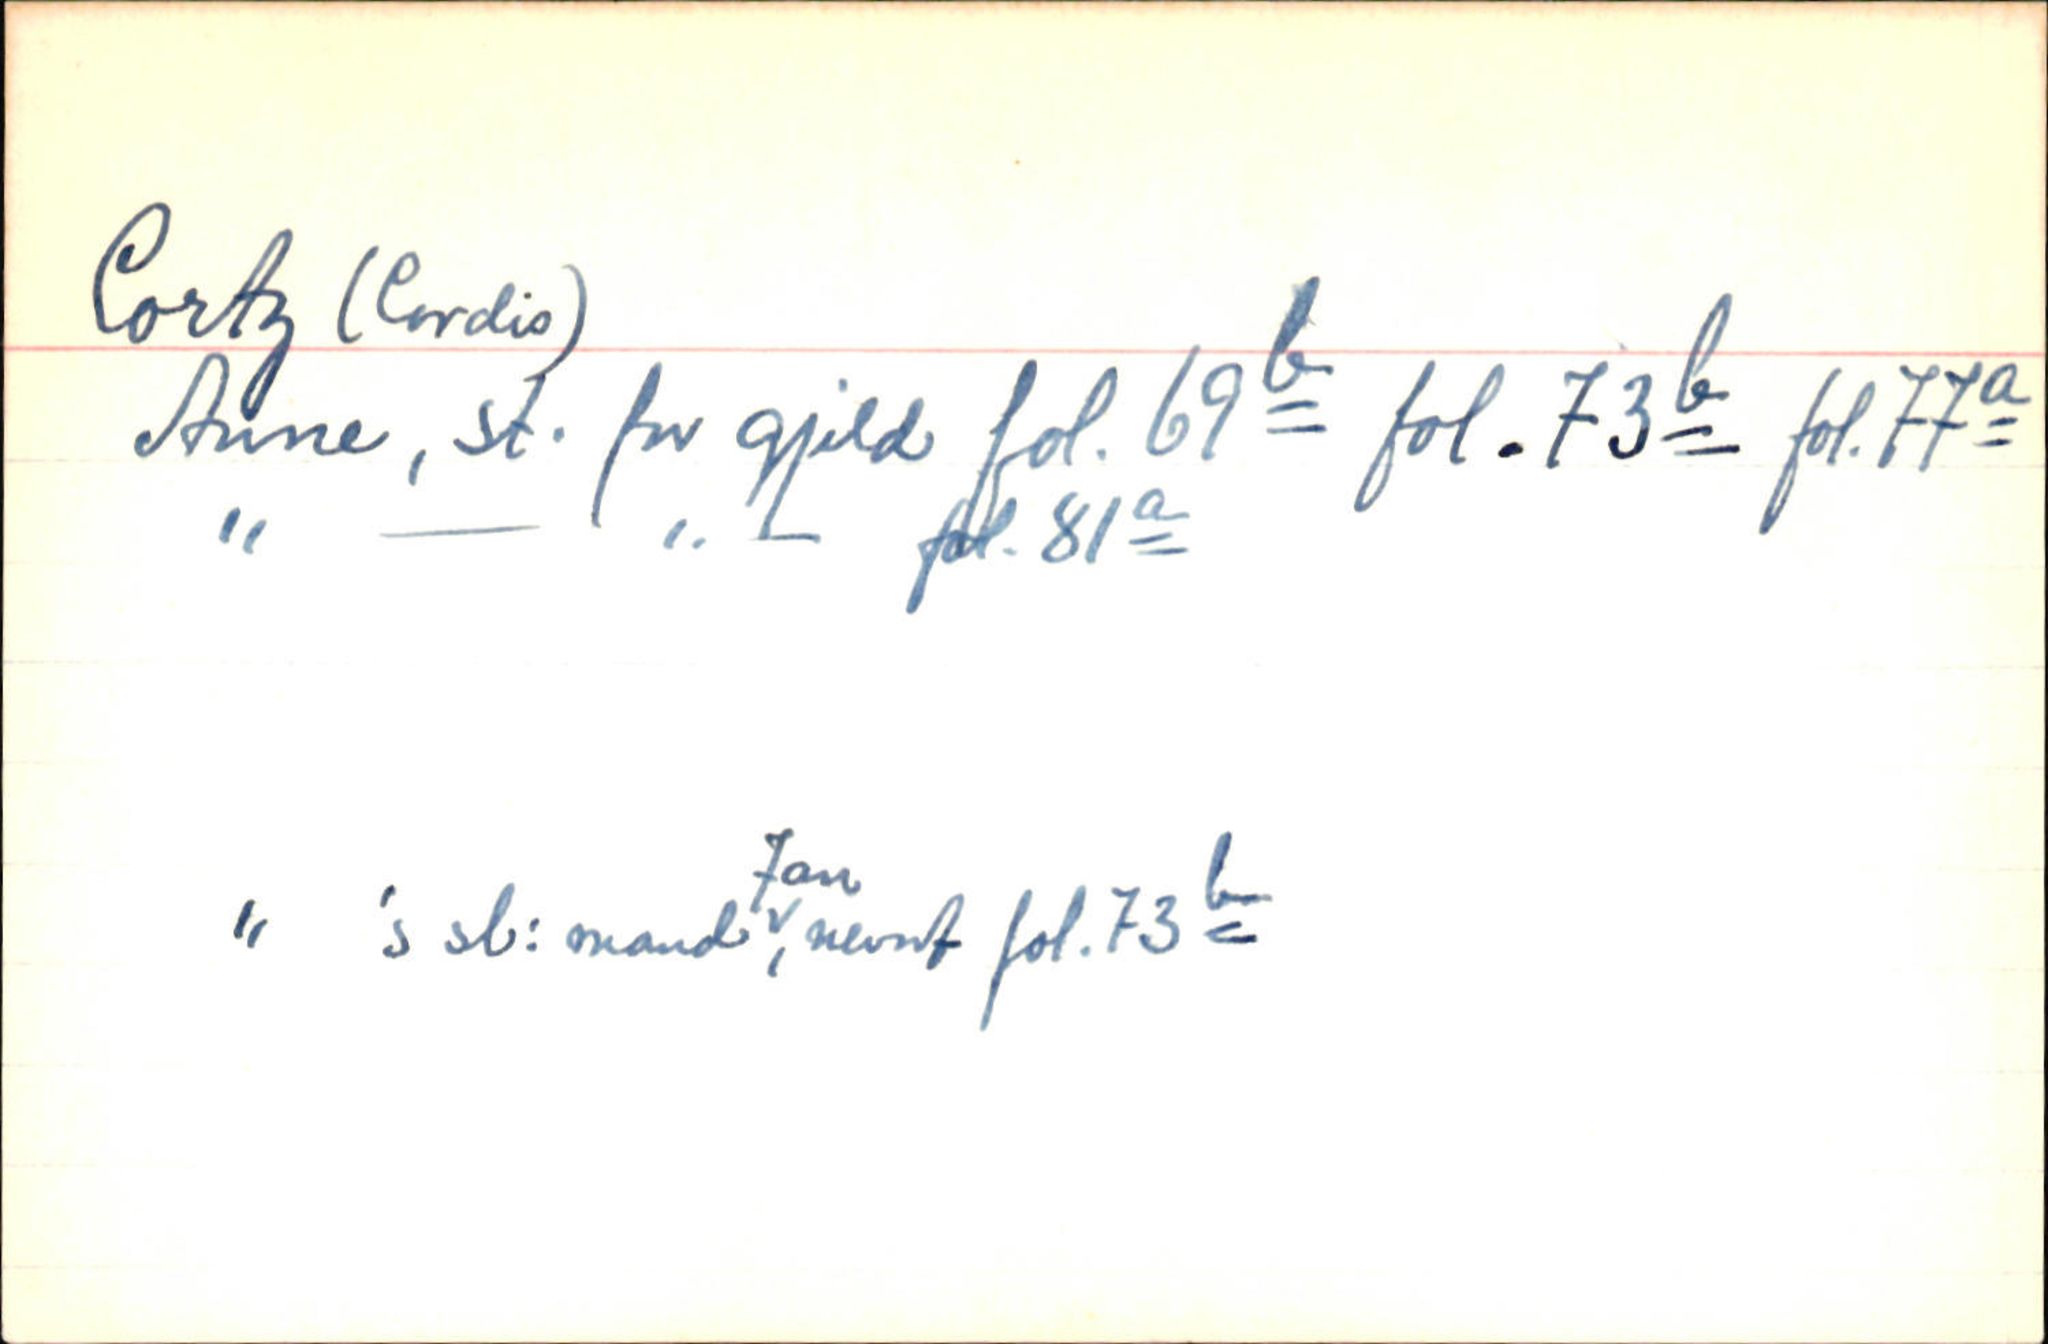 Cortz (Cordis)
Anne, st. for gjeld fol. 69b fol. 73b fol. 77a
" — " — fol. 81a
Jan
" 's sl: mand, nevnt fol. 73b